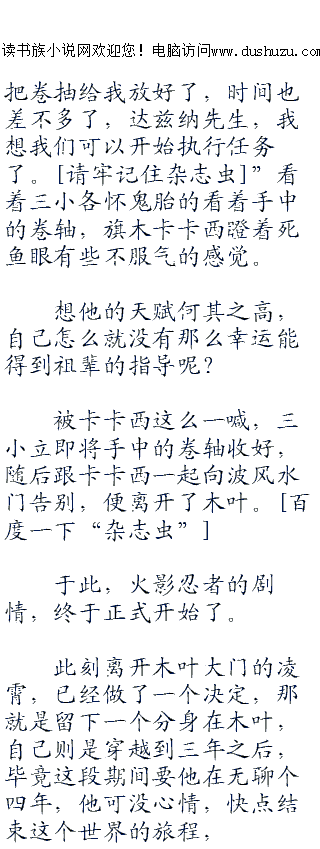 读书族小说网欢迎您！电脑访问www.dushuzu.com
把卷抽给我放好了，时间也
差不多了，达兹纳先生，我
想我们可以开始执行任务
了。[请牢记住杂志虫]”看
着三小各怀鬼胎的看着手中
的卷轴，旗木卡卡西瞪着死
鱼眼有些不服气的感觉。
想他的天赋何其之高，
自己怎么就没有那么幸运能
得到祖辈的指导呢？
被卡卡西这么一喊，三
小立即将手中的卷轴收好，
随后跟卡卡西一起向波风水
门告别，便离开了木叶。[百
度一下“杂志虫”]
于此，火影忍者的剧
情，终于正式开始了。
此刻离开木叶大门的凌
霄，已经做了一个决定，那
就是留下一个分身在木叶，
自己则是穿越到三年之后，
毕竟这段期间要他在无聊个
四年，他可没心情，快点结
束这个世界的旅程，